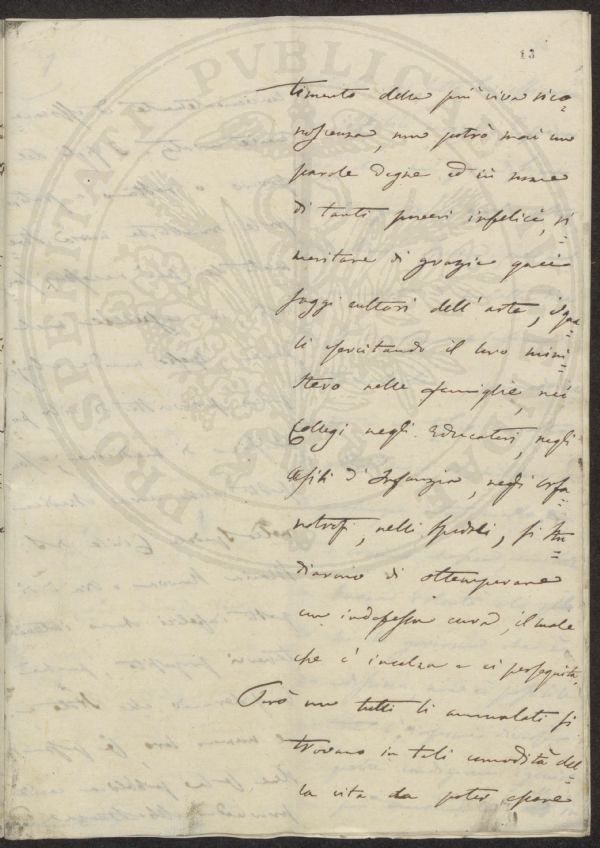 13
timento della più viva rico=
noscenza, non potrò mai con
parole degne ed in nome
di tanti poveri infelici, ri=
meritare di grazie quei
saggi cultori dell'arte, i qua=
li esercitando il loro mini=
stero nelle famiglie, nei
Collegi negli Educatori, negli
Asili d'Infanzia, negli orfa=
notrofi, nelli Spedali, si stu=
diarono di ottemperare
con indefessa cura, il male
che c'incalza e ci perseguita.
Però non tutti li ammalati si
trovano in tali comodità del=
la vita da poter essere
PROSPERITATI PVBLICAE